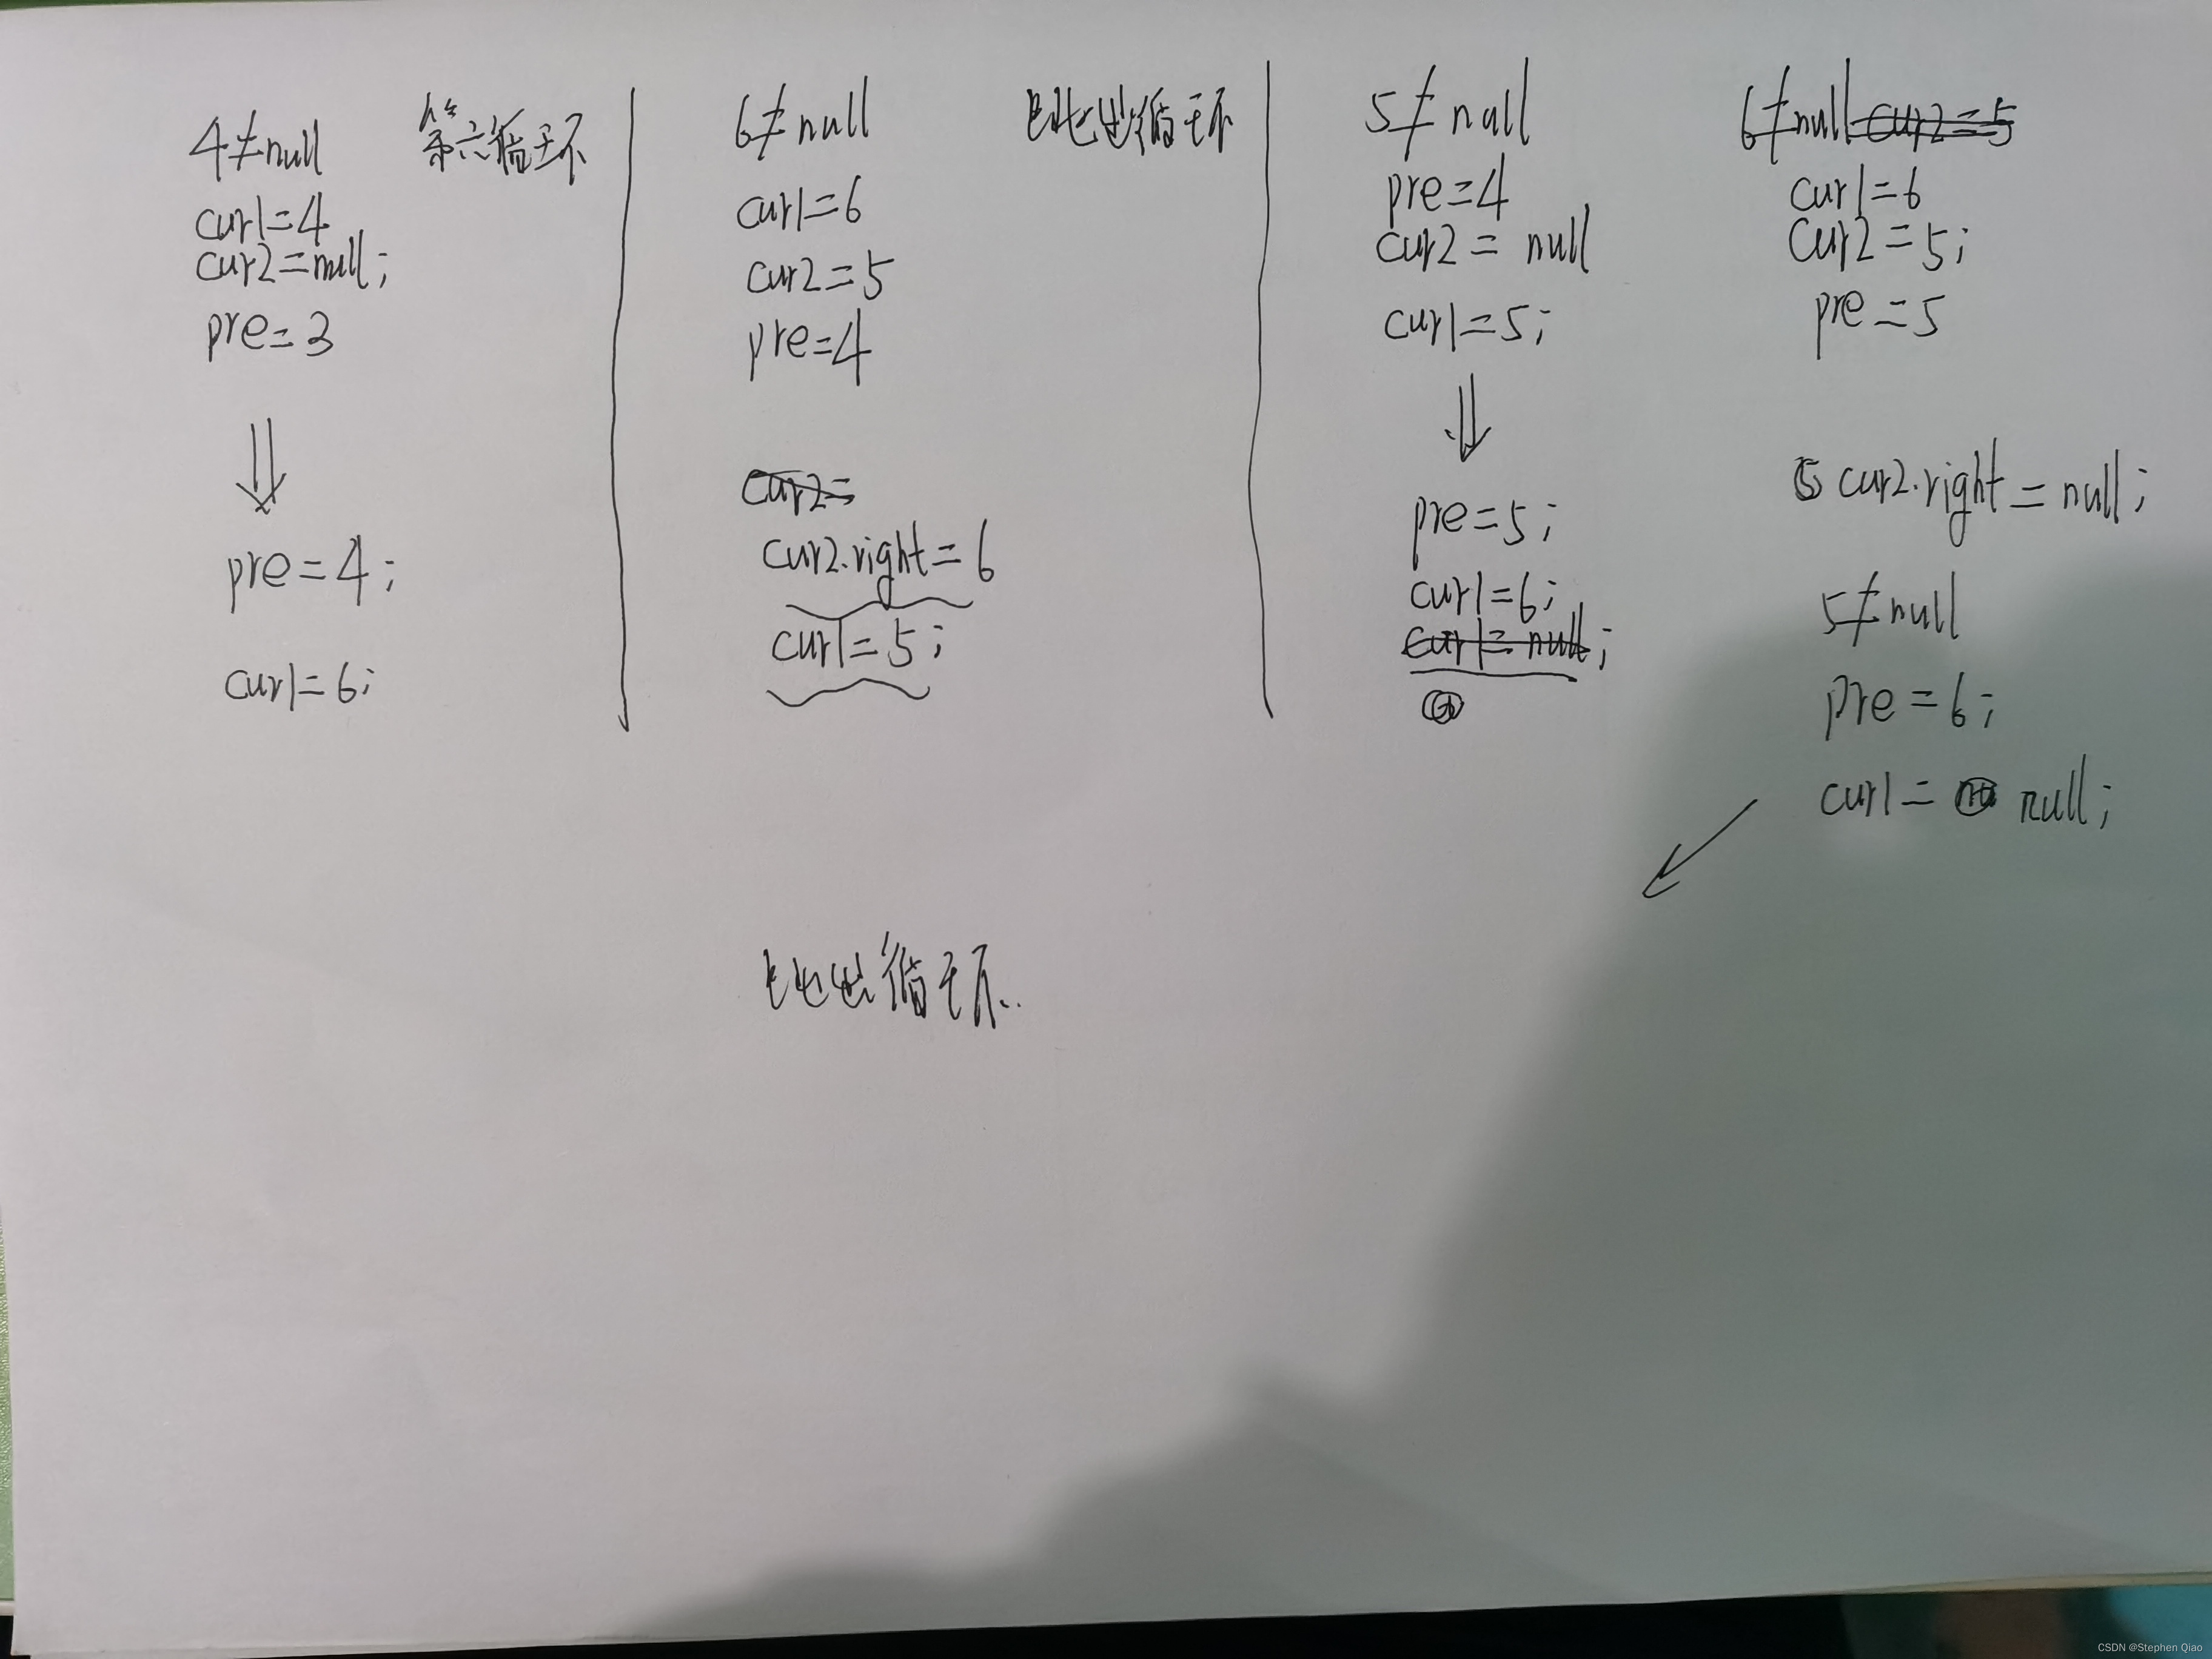 4≠null 第六循环
cur1=4
cur2=null;
pre=3
pre=4;
cur1=6;
6≠null 跳出循环
cur1=6
cur2=5
pre=4
cur2=
cur2.right=6
cur1=5;
5≠null
pre=4
cur2=null
cur1=5;
pre=5;
cur1=6;
cur1=null;
6≠null cur2=5
cur1=6
cur2=5;
pre=5
cur2.right=null;
5≠null
pre=6;
cur1=null;
跳出循环..
CSDN @Stephen Qiao